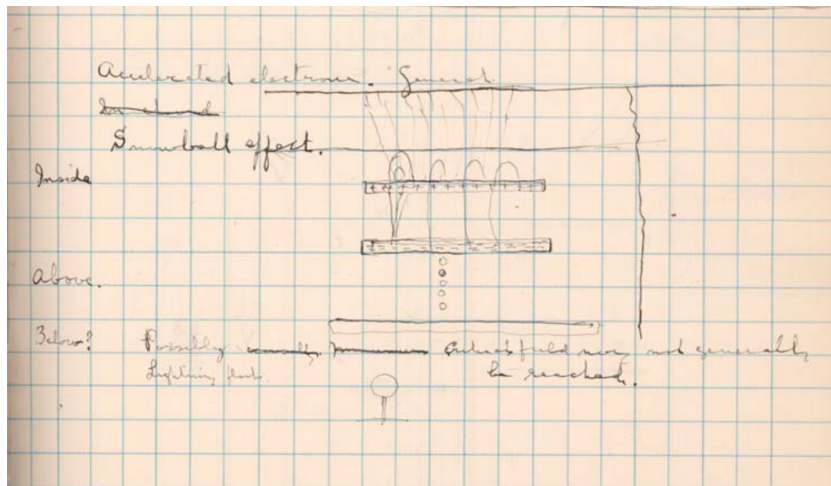 Accelerated electrons. General.
In cloud
Snowball effect.
Inside
Above.
Below? Possibly critical field may not generally
be reached.
Lightning flash.